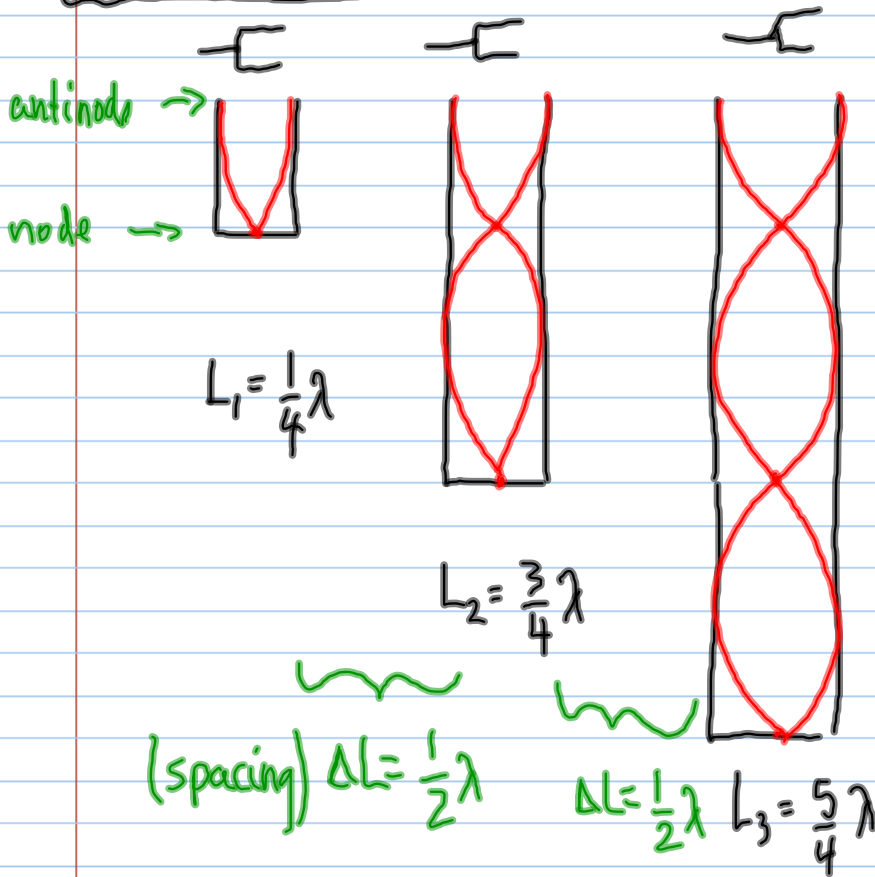 antinode →
node →
L₁ = 1/4 λ
L₂ = 3/4 λ
(spacing) ΔL = 1/2 λ
ΔL = 1/2 λ
L₃ = 5/4 λ